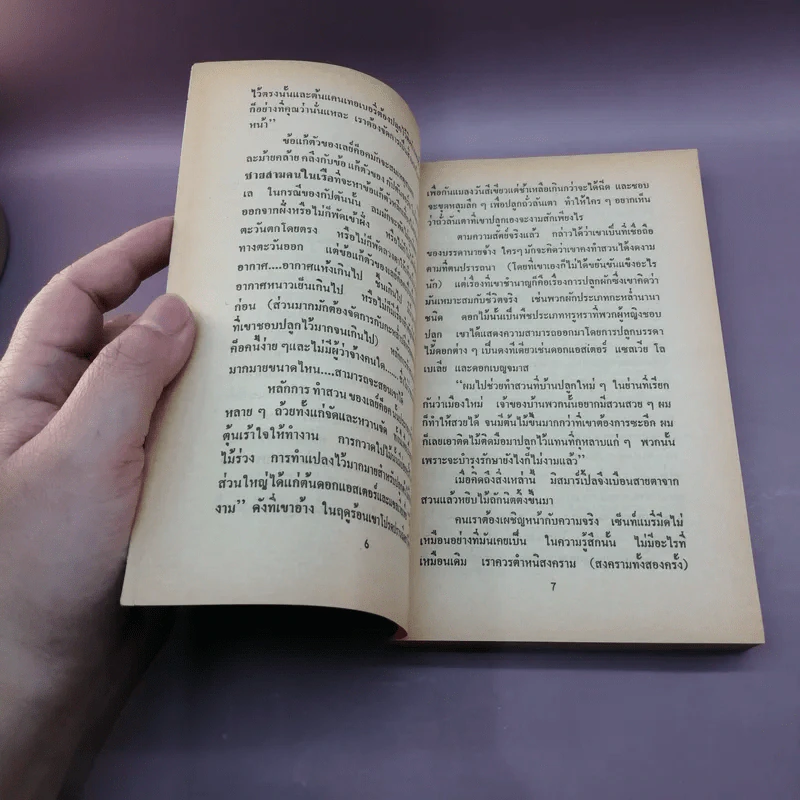 ไว้ตรงนั้นและต้นแคนเทอเบอรี่ต้องปลูกไว้
ก็อย่างที่คุณว่านั่นแหละ เราต้องจัดการ
หน้า”
ข้อแก้ตัวของเลย์ค็อคมักจะ
ละม้ายคล้าย คลึงกับข้อ แก้ตัวของ กัปตัน
ชายสามคนในเรือที่จะหาข้อแก้ตัว
เล ในกรณีของกัปตันนั้น ลมมักจะ
ออกจากฝั่งหรือไม่ก็พัดเข้าฝั่ง หรือไม่
ตะวันตกโดยตรง หรือไม่ก็พัด
ทางตะวันออก แต่ข้อแก้ตัวของ
อากาศ....อากาศแห้งเกินไป ชื้นเกินไป
อากาศหนาวเย็นเกินไป หรือไม่ก็
ก่อน (ส่วนมากมักต้องจัดการกับกะหล่ำ
ที่เขาชอบปลูกไว้มากจนเกินไป)
ค็อคนี้ง่าย ๆและไม่มีผู้ว่าจ้างคนใด....
มากมายขนาดไหน....สามารถจะสอนเขาได้
หลักการ ทำสวน ของเลย์ค็อค
หลาย ๆ ถ้วยทั้งแก่จัดและหวานจัด
ตุ้นเร้าใจให้ทำงาน การกวาดใบไม้
ไม้ร่วง การทำแปลงไว้มากมายสำหรับปลูก
ส่วนใหญ่ได้แก่ต้นดอกแอสเตอร์และ
งาม” ดังที่เขาอ้าง ในฤดูร้อนเขาโปรด
6
เพื่อกันแมลงวันสีเขียวแต่ช้าเหลือเกินกว่าจะได้ฉีด และชอบ
จะขุดหลุมลึก ๆ เพื่อปลูกถั่วลันเตา ทำให้ใคร ๆ อยากเห็น
ว่าถั่วลันเตาที่เขาปลูกเองจะงามสักเพียงไร
ตามความสัตย์จริงแล้ว กล่าวได้ว่าเขาเป็นที่เชื่อถือ
ของบรรดานายจ้าง ใครๆ มักจะคิดว่าเขาคงทำสวนได้งดงาม
ตามที่ตนปรารถนา (โดยที่เขาเองก็ไม่ได้ขยันขันแข็งอะไร
นัก) แต่เรื่องที่เขาชำนาญก็คือเรื่องการปลูกผักซึ่งเขาคิดว่า
มันเหมาะสมกับชีวิตจริง เช่นพวกผักประเภทกะหล่ำนานา
ชนิด ดอกไม้นั้นเป็นพืชประเภทหรูหราที่พวกผู้หญิงชอบ
ปลูก เขาได้แสดงความสามารถออกมาโดยการปลูกบรรดา
ไม้ดอกต่าง ๆ เป็นดงทีเดียวเช่นดอกแอสเตอร์ แซลเวีย โล
เบเลีย และดอกเบญจมาส
“ผมไปช่วยทำสวนที่บ้านปลูกใหม่ ๆ ในย่านที่เรียก
กันว่าเมืองใหม่ เจ้าของบ้านพวกนั้นอยากมีสวนสวย ๆ ผม
ก็ทำให้สวยได้ จนมีต้นไม้ขึ้นมากกว่าที่เขาต้องการซะอีก ผม
ก็เลยเอาติดไม้ติดมือมาปลูกไว้แทนที่กุหลาบแก่ ๆ พวกนั้น
เพราะจะบำรุงรักษายังไงก็ไม่งามแล้ว”
เมื่อคิดถึงสิ่งเหล่านี้ มิสมาร์เปิลจึงเบือนสายตาจาก
สวนแล้วหยิบไม้ถักนิตติ้งขึ้นมา
คนเราต้องเผชิญหน้ากับความจริง เซ็นท์แมรี่มีดไม่
เหมือนอย่างที่มันเคยเป็น ในความรู้สึกนั้น ไม่มีอะไรที่
เหมือนเดิม เราควรตำหนิสงคราม (สงครามทั้งสองครั้ง)
7